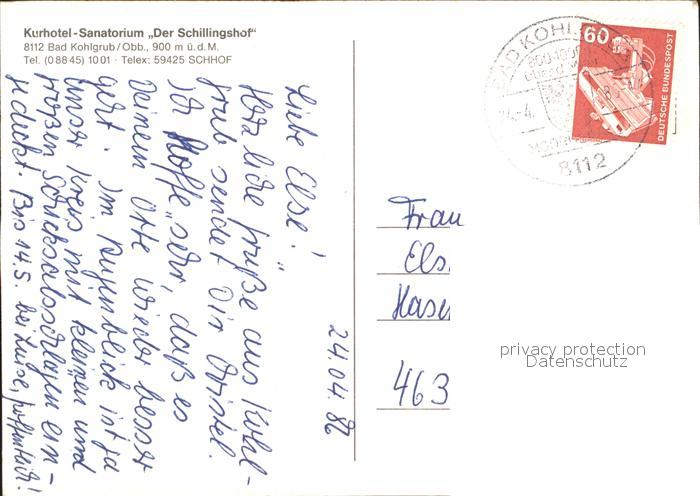 Kurhotel-Sanatorium „Der Schillingshof“
8112 Bad Kohlgrub/Obb., 900 m ü.d.M.
Tel. (0 88 45) 10 01 · Telex: 59425 SCHHOF
24.04.82
Liebe Else!
Herzliche Grüße aus Kohl-
grub sendet Dir Christel.
Ich hoffe sehr, daß es
Deinem Otto wieder besser
geht. Im Augenblick ist ja
unser Kreis mit kleinen und
großen Schicksalsschlägen ein-
gedeckt. Bis 14.5. bei Luise, hoffentlich!
BAD KOHLGRUB
24.-4.
8112
60
DEUTSCHE BUNDESPOST
Frau
Els
Hase
463
privacy protection
Datenschutz